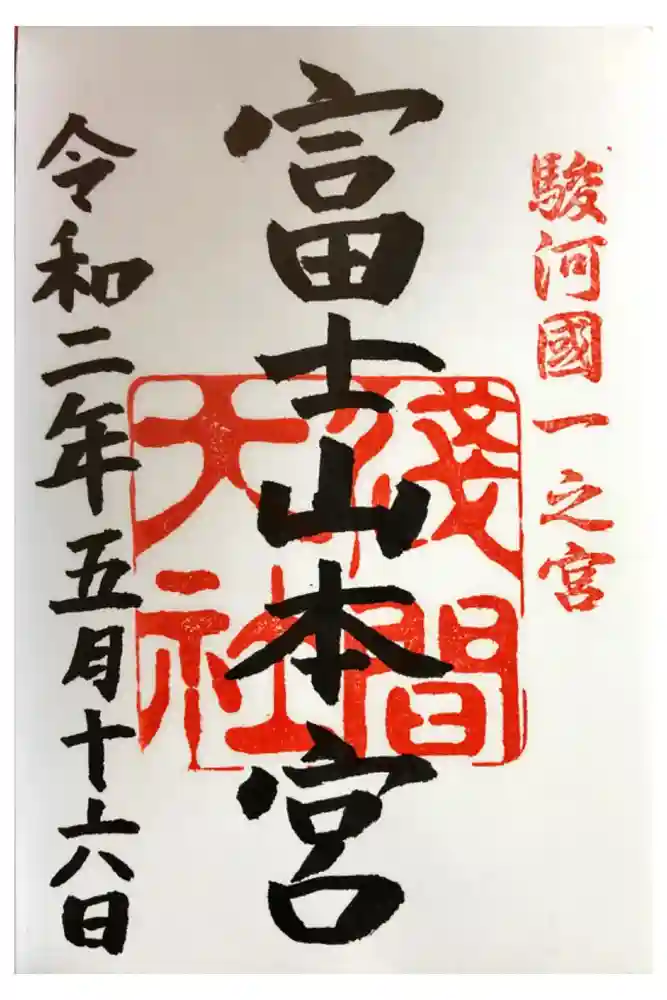 駿河國一之宮
富士山本宮
淺間
大社
令和二年五月十六日